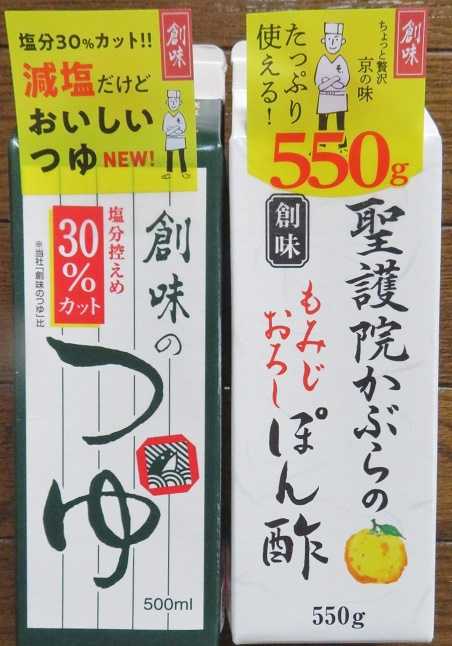 創味
塩分30%カット!!
減塩だけど
おいしい
つゆ NEW!
創味の
つゆ
塩分控えめ
30%
カット
※当社「創味のつゆ」比
500ml
創味
ちょっと贅沢
京の味
たっぷり
使える!
550g
創味
聖護院かぶらの
もみじ
おろし
ぽん酢
550g